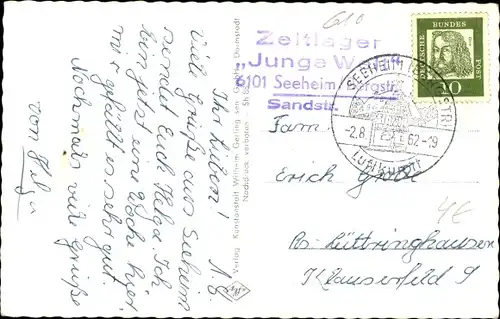 Ihr Lieben!
Viele Grüße aus Seeheim
sendet Euch Helga. Ich
bin jetzt eine Woche hier,
mir gefällt es sehr gut.
Nochmals viele Grüße
von Helga
Verlag Kunstanstalt Wilhelm Gerling GmbH Darmstadt
Nachdruck verboten
610
Zeltlager
„Junge Welt"
6101 Seeheim
Sandstr.
DEUTSCHE BUNDESPOST
10
SEEHEIM (BERGSTR)
-2.8.62-19
Luftkurort
Fam.
Erich Grobe
Rs. Lüttringhausen
Klauserfeld 9
4€